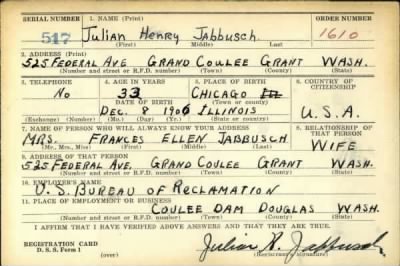 SERIAL NUMBER 1. NAME (Print) ORDER NUMBER
517 Julian Henry Jabbusch. 1610
(First) (Middle) (Last)
2. ADDRESS (Print)
525 FEDERAL AVE GRAND COULEE GRANT WASH.
(Number and street or R.F.D. number) (Town) (County) (State)
3. TELEPHONE 4. AGE IN YEARS 5. PLACE OF BIRTH 6. COUNTRY OF CITIZENSHIP
No 33 CHICAGO
DATE OF BIRTH
DEC. 8 1906 ILLINOIS U.S.A.
(Exchange) (Number) (Mo.) (Day) (Yr.) (State or country)
7. NAME OF PERSON WHO WILL ALWAYS KNOW YOUR ADDRESS 8. RELATIONSHIP OF THAT PERSON
MRS. FRANCES ELLEN JABBUSCH WIFE
(Mr., Mrs., Miss) (First) (Middle) (Last)
9. ADDRESS OF THAT PERSON
525 FEDERAL AVE GRAND COULEE GRANT WASH.
(Number and street or R.F.D. number) (Town) (County) (State)
10. EMPLOYER'S NAME
U.S. BUREAU OF RECLAMATION
11. PLACE OF EMPLOYMENT OR BUSINESS
COULEE DAM DOUGLAS WASH.
(Number and street or R.F.D. number) (Town) (County) (State)
I AFFIRM THAT I HAVE VERIFIED ABOVE ANSWERS AND THAT THEY ARE TRUE.
REGISTRATION CARD
D. S. S. Form 1 (over) (Registrant's signature)
Julian H. Jabbusch